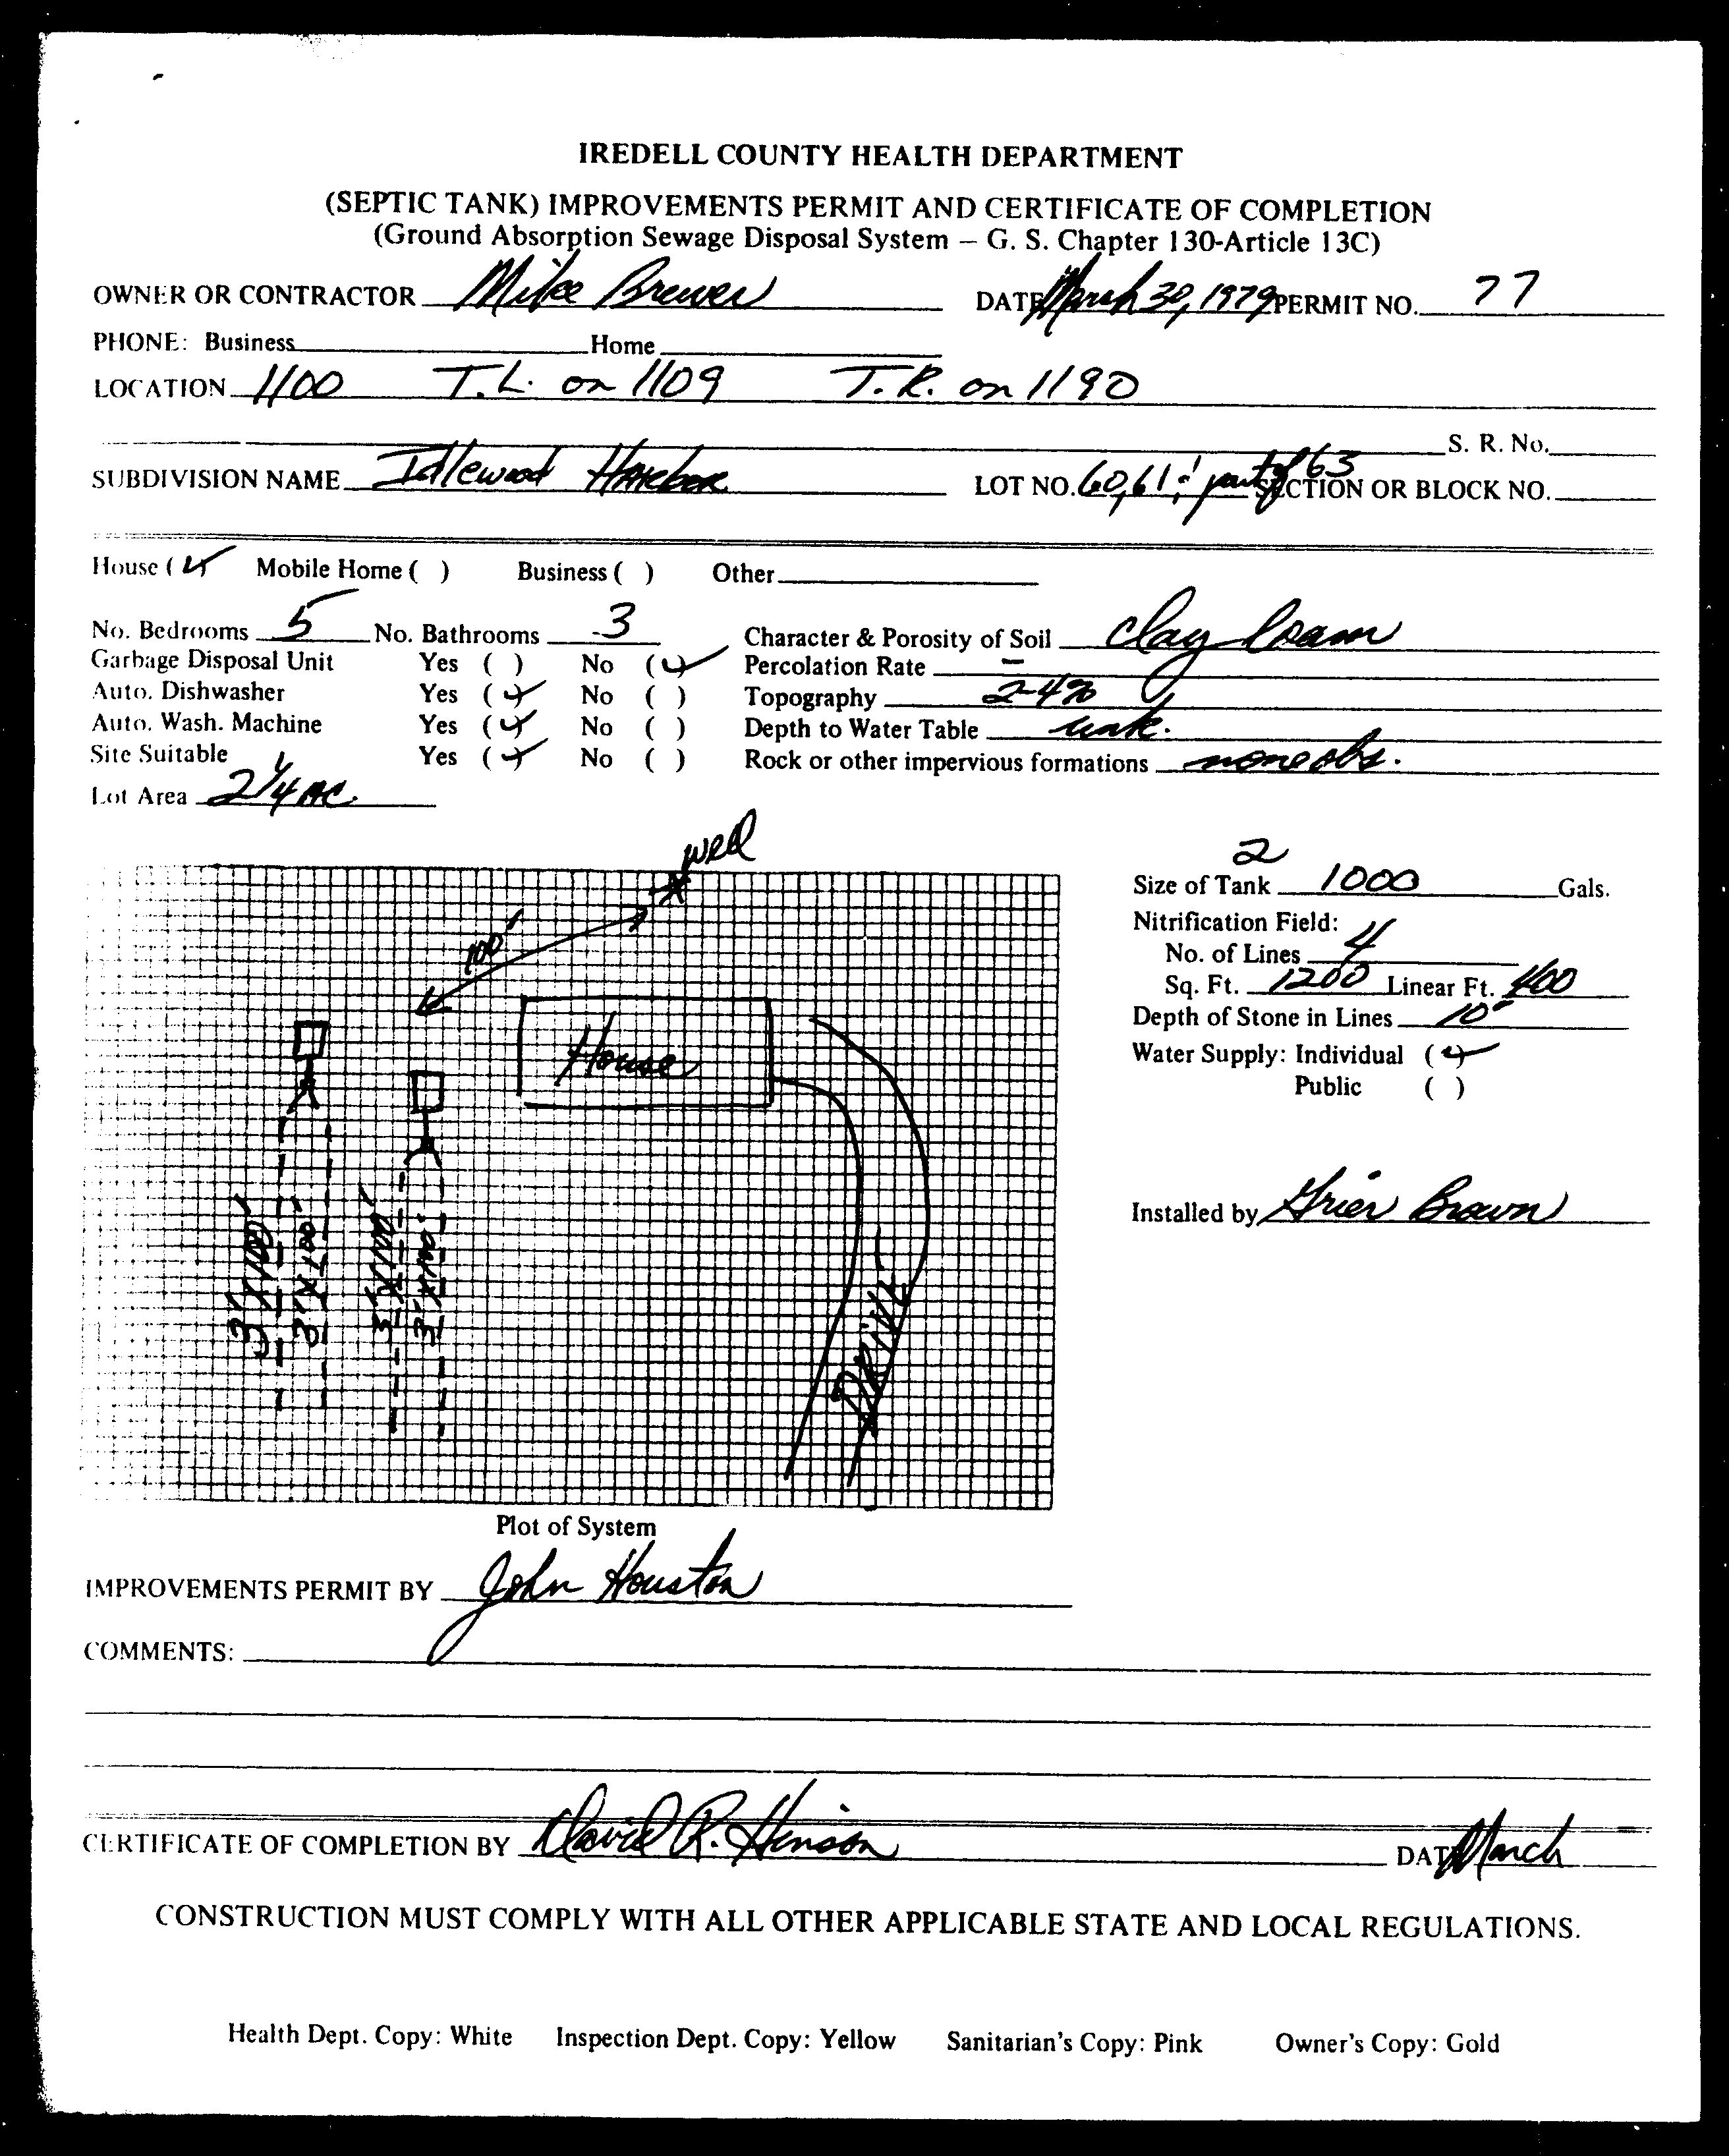 IREDELL COUNTY HEALTH DEPARTMENT
(SEPTIC TANK) IMPROVEMENTS PERMIT AND CERTIFICATE OF COMPLETION
(Ground Absorption Sewage Disposal System – G. S. Chapter 130-Article 13C)
OWNER OR CONTRACTOR Mike Brewer DATE March 30, 1979 PERMIT NO. 77
PHONE: Business Home
LOCATION 1100 T.L. on 1109 T.R. on 1190
S. R. No.
SUBDIVISION NAME Idlewood Harbor LOT NO. 60, 61 & part of 63 SECTION OR BLOCK NO.
House (✓) Mobile Home ( ) Business ( ) Other
No. Bedrooms 5 No. Bathrooms 3 Character & Porosity of Soil clay loam
Garbage Disposal Unit Yes ( ) No (✓) Percolation Rate –
Auto. Dishwasher Yes (✓) No ( ) Topography 2-4%
Auto. Wash. Machine Yes (✓) No ( ) Depth to Water Table unk.
Site Suitable Yes (✓) No ( ) Rock or other impervious formations none obs.
Lot Area 2 1/4 AC.
well
100'
House
3' X 100'
3' X 100'
3' X 100'
3' X 100'
DRIVE
2
Size of Tank 1000 Gals.
Nitrification Field:
No. of Lines 4
Sq. Ft. 1200 Linear Ft. 400
Depth of Stone in Lines 10"
Water Supply: Individual (✓)
Public ( )
Installed by Grier Brown
Plot of System
IMPROVEMENTS PERMIT BY John Houston
COMMENTS:
CERTIFICATE OF COMPLETION BY David R. Henson DATE March
CONSTRUCTION MUST COMPLY WITH ALL OTHER APPLICABLE STATE AND LOCAL REGULATIONS.
Health Dept. Copy: White Inspection Dept. Copy: Yellow Sanitarian's Copy: Pink Owner's Copy: Gold